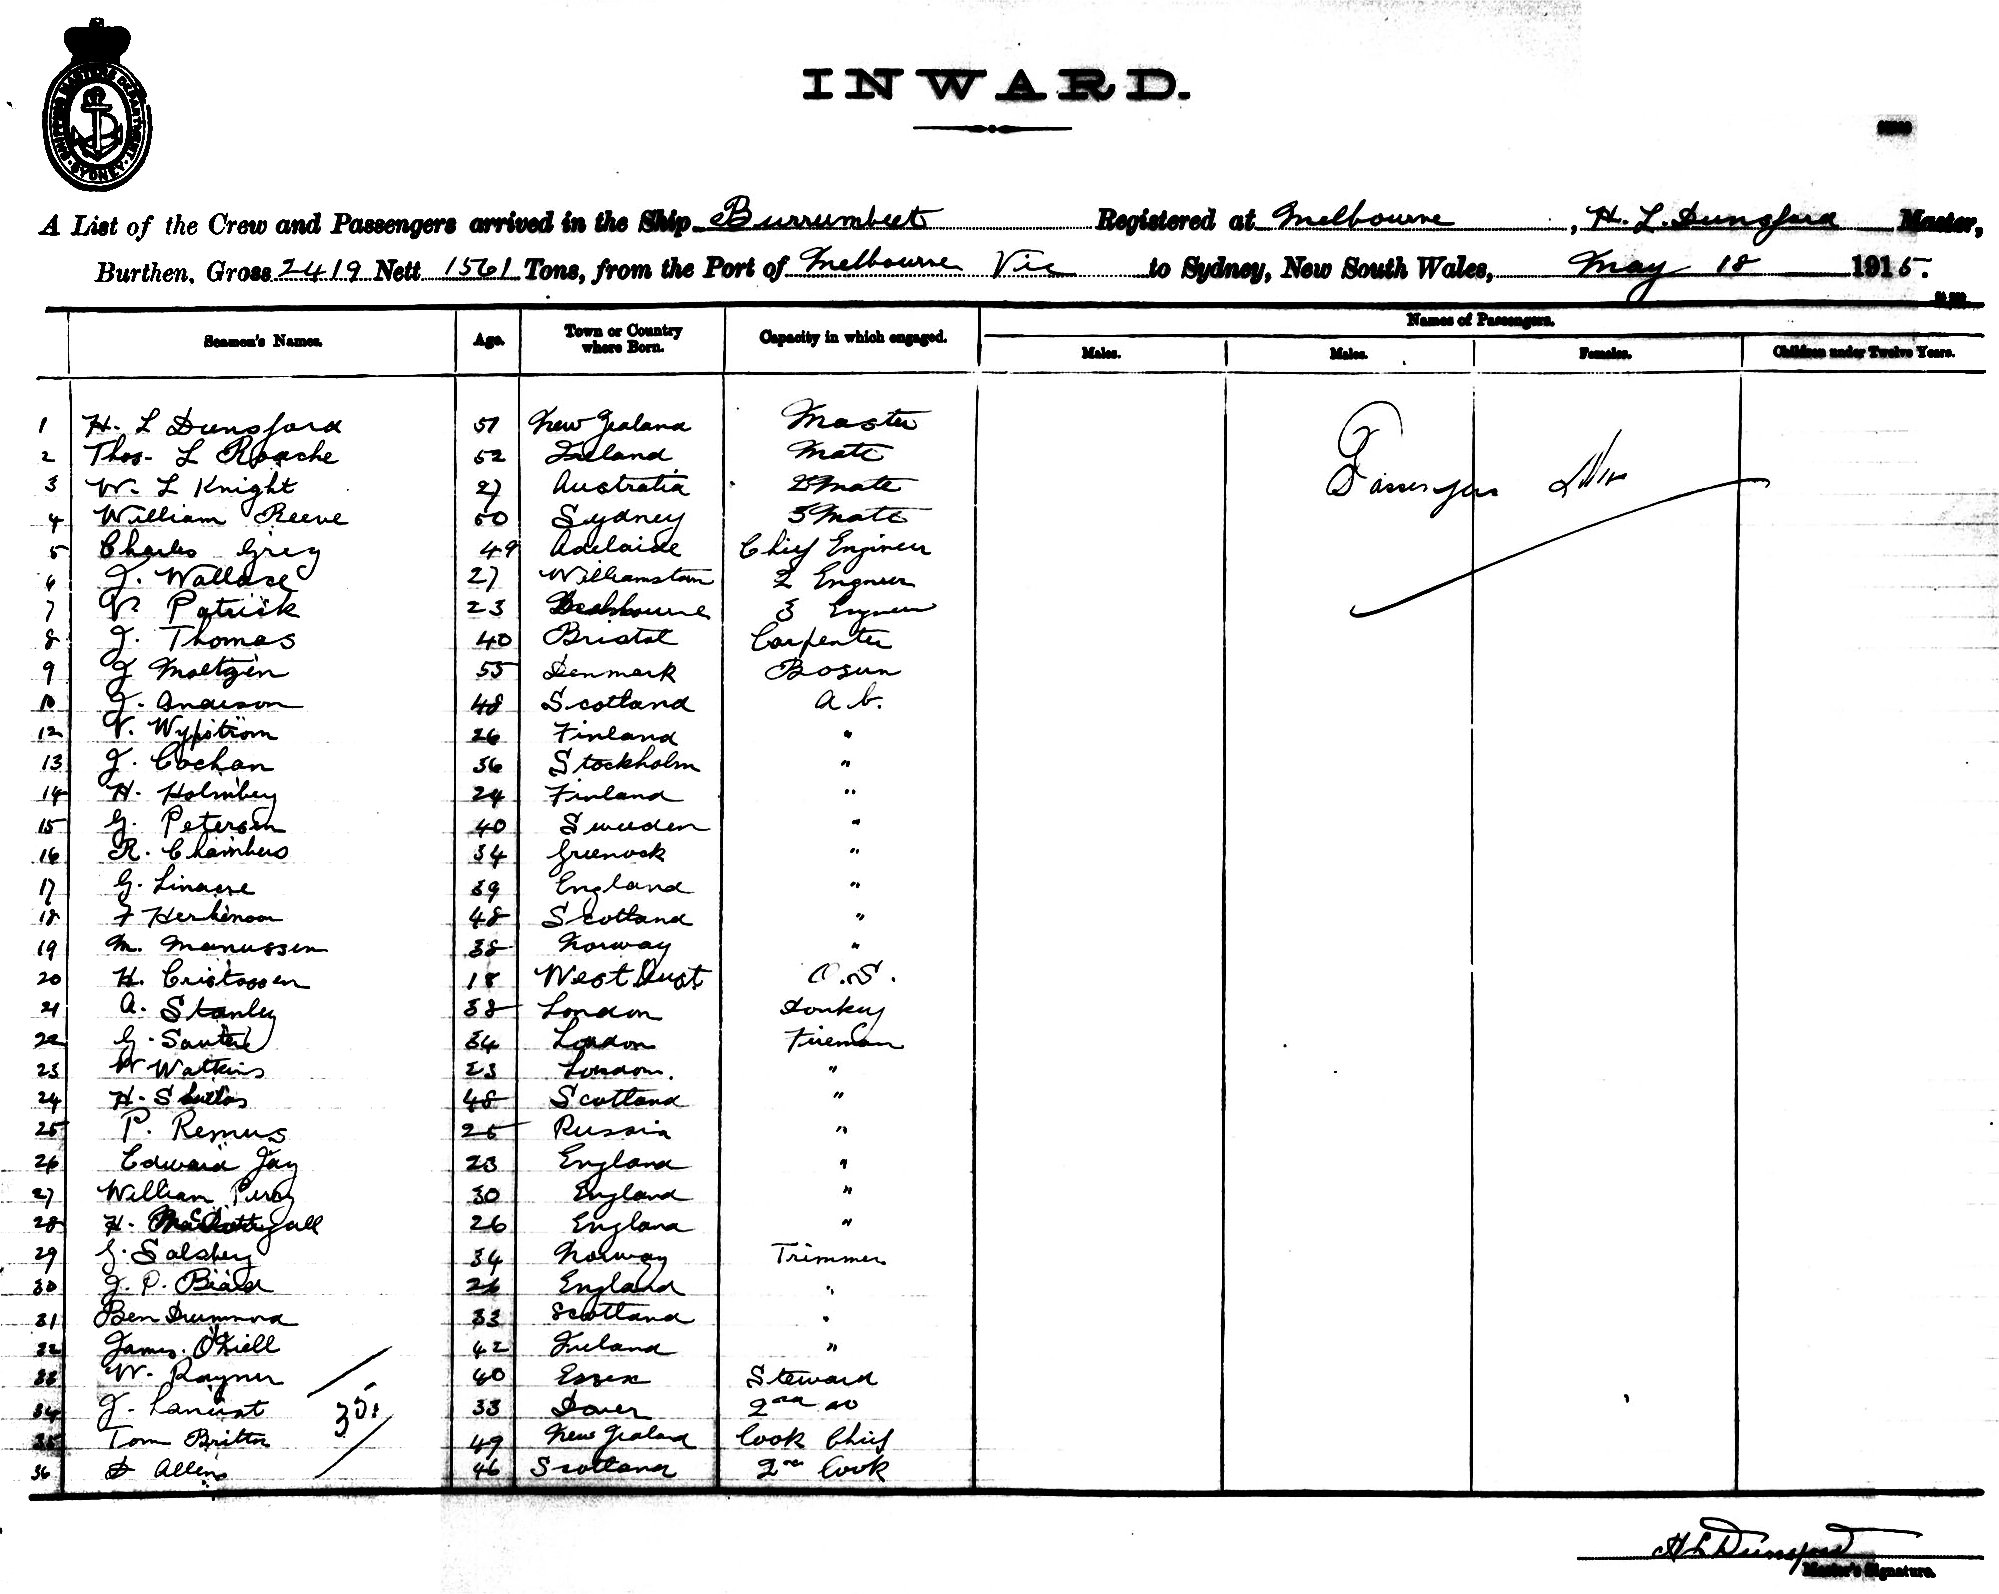 SHIPPING MASTERS DEPARTMENT SYDNEY
INWARD.
A List of the Crew and Passengers arrived in the Ship Burrumbeet Registered at Melbourne, H. L. Dunsford Master,
Burthen, Gross 2419 Nett 1561 Tons, from the Port of Melbourne Vic to Sydney, New South Wales, May 18 1915.
Names of Passengers.
Seamen's Names. Age. Town or Country where Born. Capacity in which engaged. Males. Males. Females. Children under Twelve Years.
1 H. L Dunsford 51 New Zealand Master
2 Thos. L Roache 52 Ireland Mate
3 W. L Knight 27 Australia 2 Mate
4 William Reeve 50 Sydney 3 Mate
5 Charles Grey 49 Adelaide Chief Engineer
6 J. Wallace 27 Williamstown 2 Engineer
7 V. Patrick 23 3 Engineer
8 J. Thomas 40 Bristol Carpenter
9 J Moltzen 55 Denmark Bosun
10 J. Anderson 48 Scotland A. b.
12 V. Wypstrom 26 Finland "
13 J. Cochan 36 Stockholm "
14 H. Holmberg 24 Finland "
15 G. Petersen 40 Sweeden "
16 R. Chambers 34 Greenock "
17 G. Linacre 39 England "
18 F 48 Scotland "
19 M. Manussen 38 Norway "
20 H. Cristossen 18 West O.S.
21 A. Stanley 38 London Donkey
22 G. 34 London Fireman
23 W Watkins 23 London. "
24 H. 48 Scotland "
25 P. Remus 25 Russia "
26 Edward Jay 23 England "
27 William Percy 30 England "
28 H. 26 England "
29 G. Salsberg 34 Norway Trimmer
30 J. P. Beard 26 England "
31 Ben Drummond 33 Scotland "
32 James. O'Niell 42 Ireland "
33 W. Rayner 40 Essex Steward
34 J. 33 Dover 2nd do
35 Tom Britton 49 New Zealand Cook Chief
36 D Allens 46 Scotland 2nd Cook
35
Passengers Nil
H L Dunsford
Master's Signature.